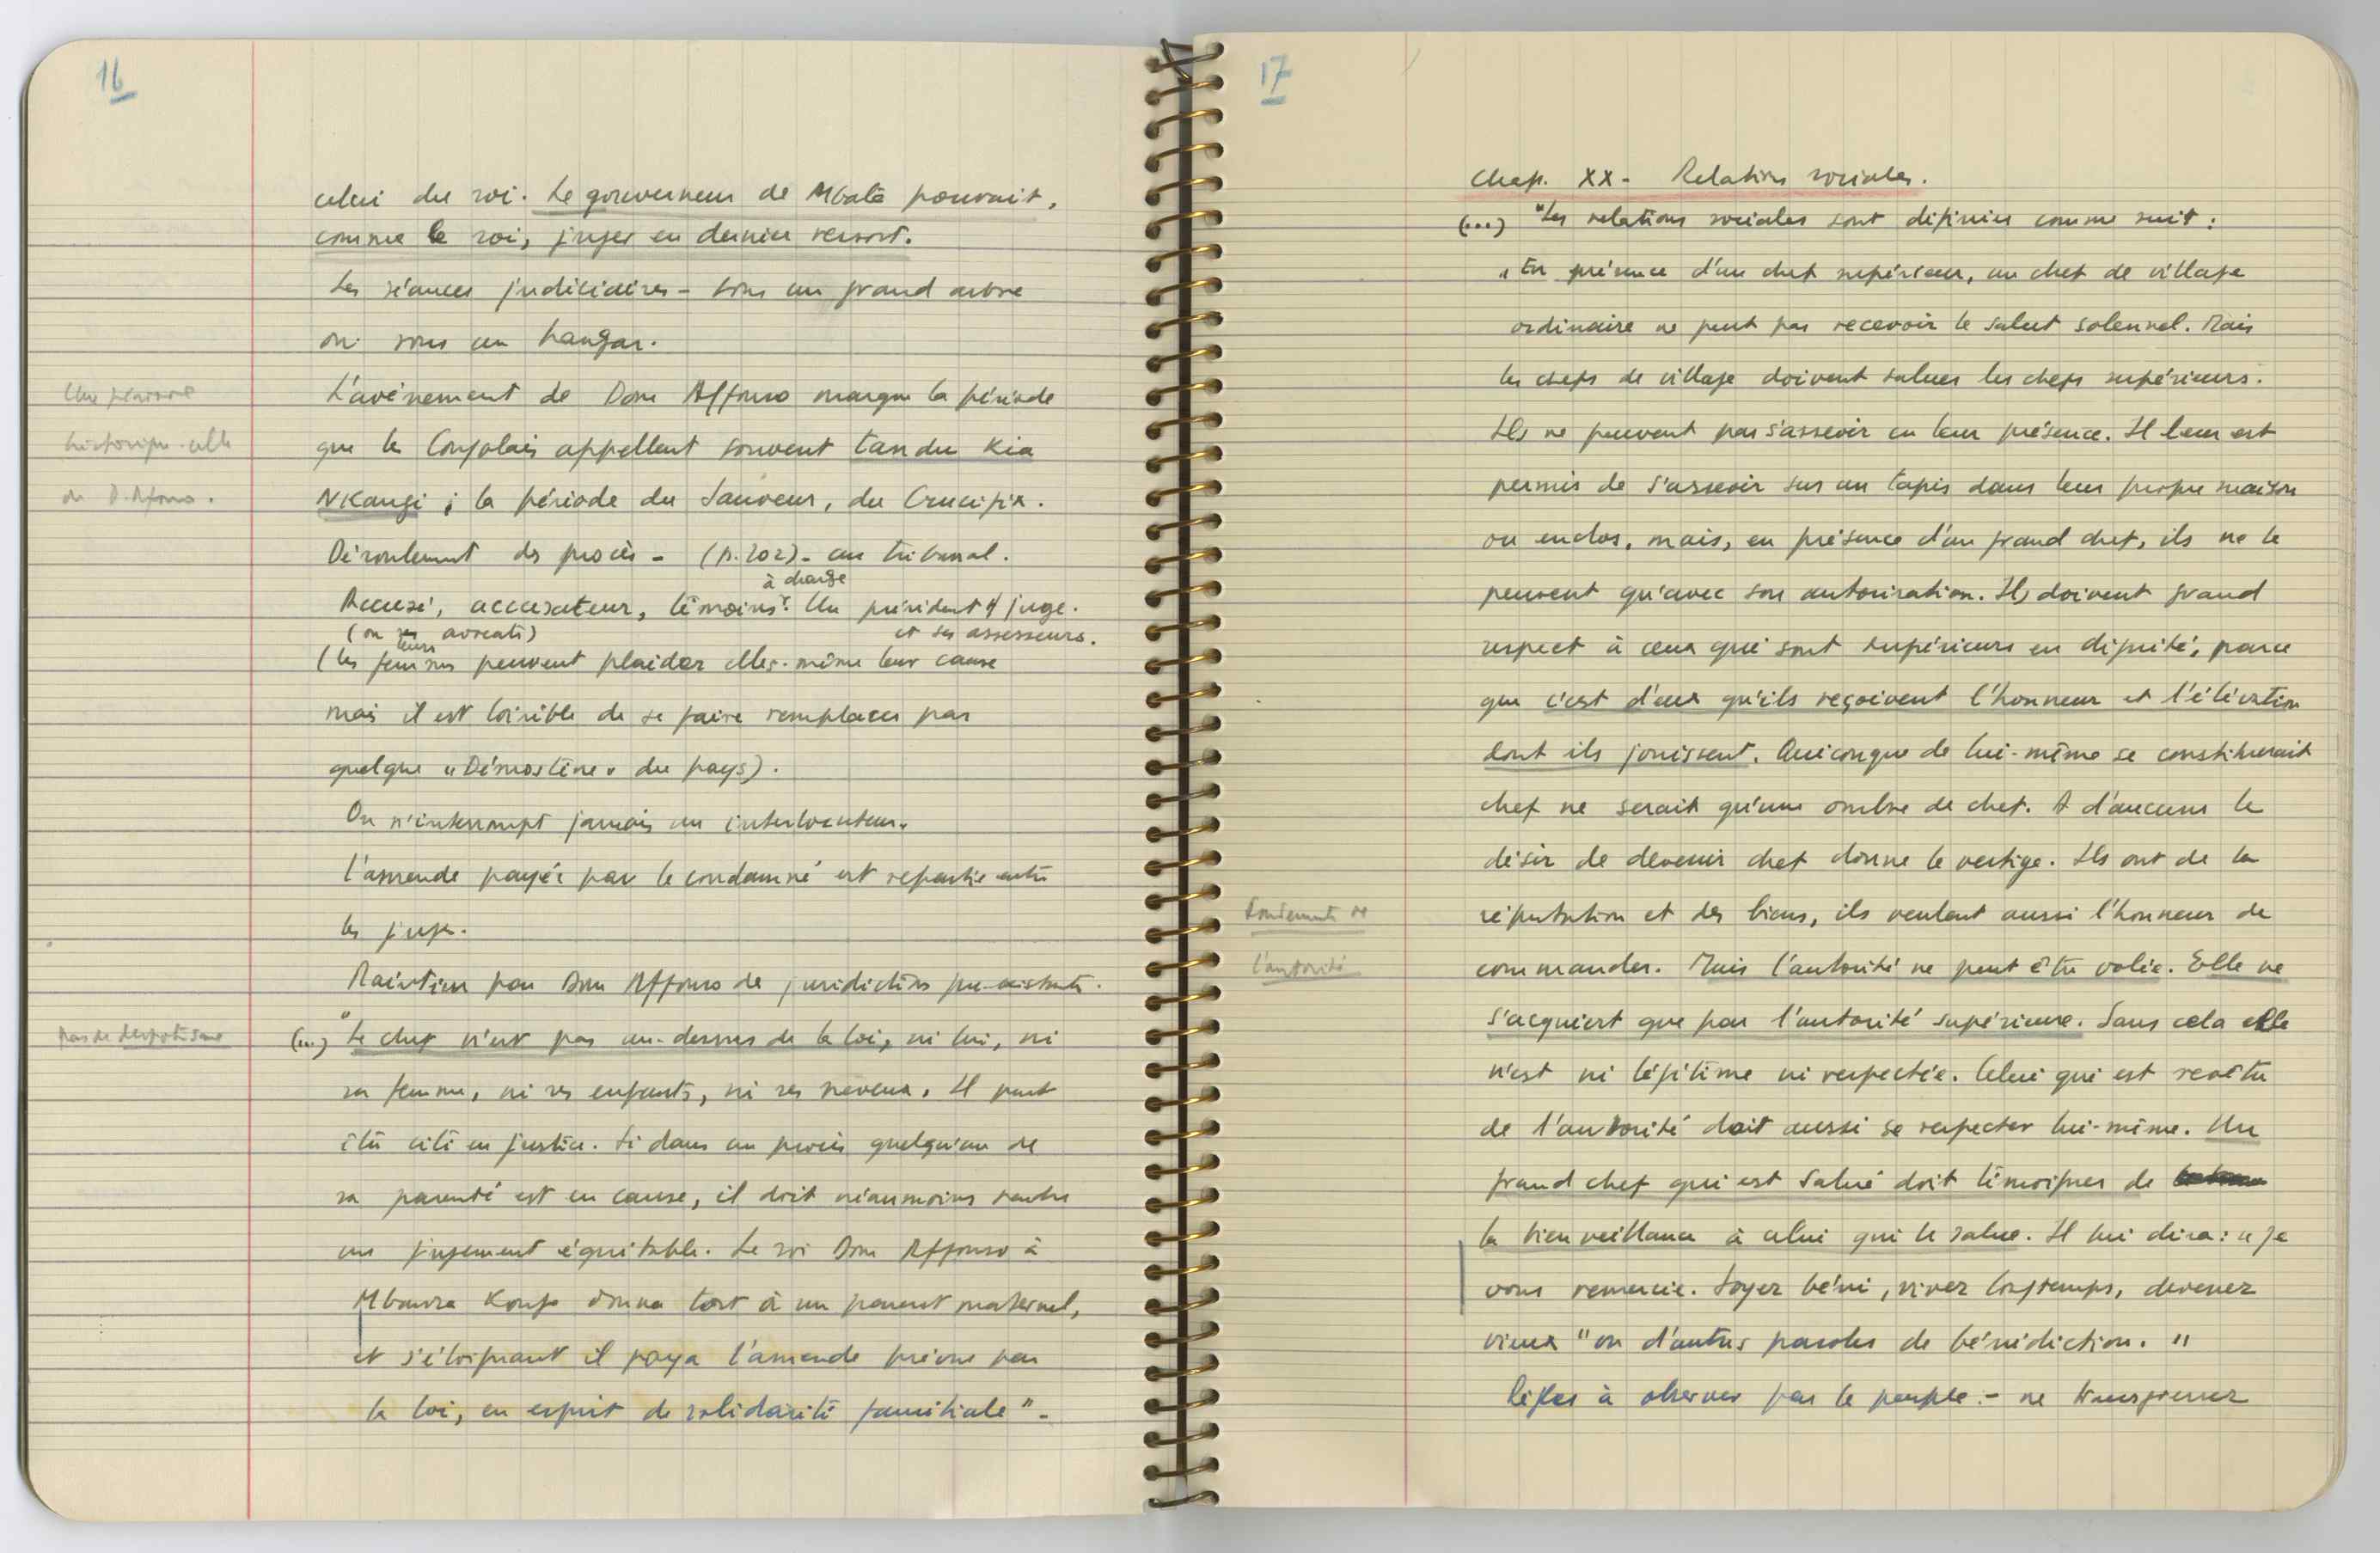 16
celui du roi. Le gouverneur de Mbata pouvait,
comme le roi, juger en dernier ressort.
Les séances judiciaires - sous un grand arbre
ou sous un hangar.
Une période
historique - celle
de D. Afonso.
L'avénement de Dom Affonso marque la période
que les Congolais appellent souvent tandu kia
Nkangi ; la période du Sauveur, du Crucifix.
Déroulement des procès - (p. 202) - au tribunal.
à charge
Accusé, accusateur, témoins. Un président & juge.
(ou ses avocats) et ses assesseurs.
leurs
(les femmes peuvent plaider elles-même leur cause
mais il est loisible de se faire remplacer par
quelque "Démostène" du pays).
On n'interrompt jamais un interlocuteur.
L'amende payée par le condamné est repartie entre
les juges.
Maintien par Dom Affonso de juridictions pré-existantes.
pas de despotisme
(...) "Le chef n'est pas au-dessus de la loi, ni lui, ni
sa femme, ni ses enfants, ni ses neveux. Il peut
être cité en justice. Si dans un procès quelqu'un de
sa parenté est en cause, il doit néanmoins rendre
un jugement équitable. Le roi Dom Affonso à
Mbanza Kongo donna tort à un parent maternel,
et s'éloignant il paya l'amende prévue par
la loi, en esprit de solidarité familiale" -
17
Chap. XX - Relations sociales.
(...) "Les relations sociales sont définies comme suit :
"En présence d'un chef supérieur, un chef de village
ordinaire ne peut pas recevoir le salut solennel. Mais
les chefs de village doivent saluer les chefs supérieurs.
Ils ne peuvent pas s'asseoir en leur présence. Il leur est
permis de s'asseoir sur un tapis dans leur propre maison
ou enclos, mais, en présence d'un grand chef, ils ne le
peuvent qu'avec son autorisation. Ils doivent grand
respect à ceux qui sont supérieurs en dignité, parce
que c'est d'eux qu'ils reçoivent l'honneur et l'élévation
dont ils jouissent. Quiconque de lui-même se constituerait
chef ne serait qu'une ombre de chef. A d'aucuns le
désir de devenir chef donne le vertige. Ils ont de la
Fondements de
l'autorité
réputation et des biens, ils veulent aussi l'honneur de
commander. Mais l'autorité ne peut être volée. Elle ne
s'acquiert que par l'autorité supérieure. Sans cela elle
n'est ni légitime ni respectée. Celui qui est revêtu
de l'autorité doit aussi se respecter lui-même. Un
grand chef qui est salué doit témoigner de
la bienveillance à celui qui le salue. Il lui dira : "Je
vous remercie. Soyez béni, vivez longtemps, devenez
vieux" ou d'autres paroles de bénédiction. "
Règles à observer par le peuple : - ne transgresser